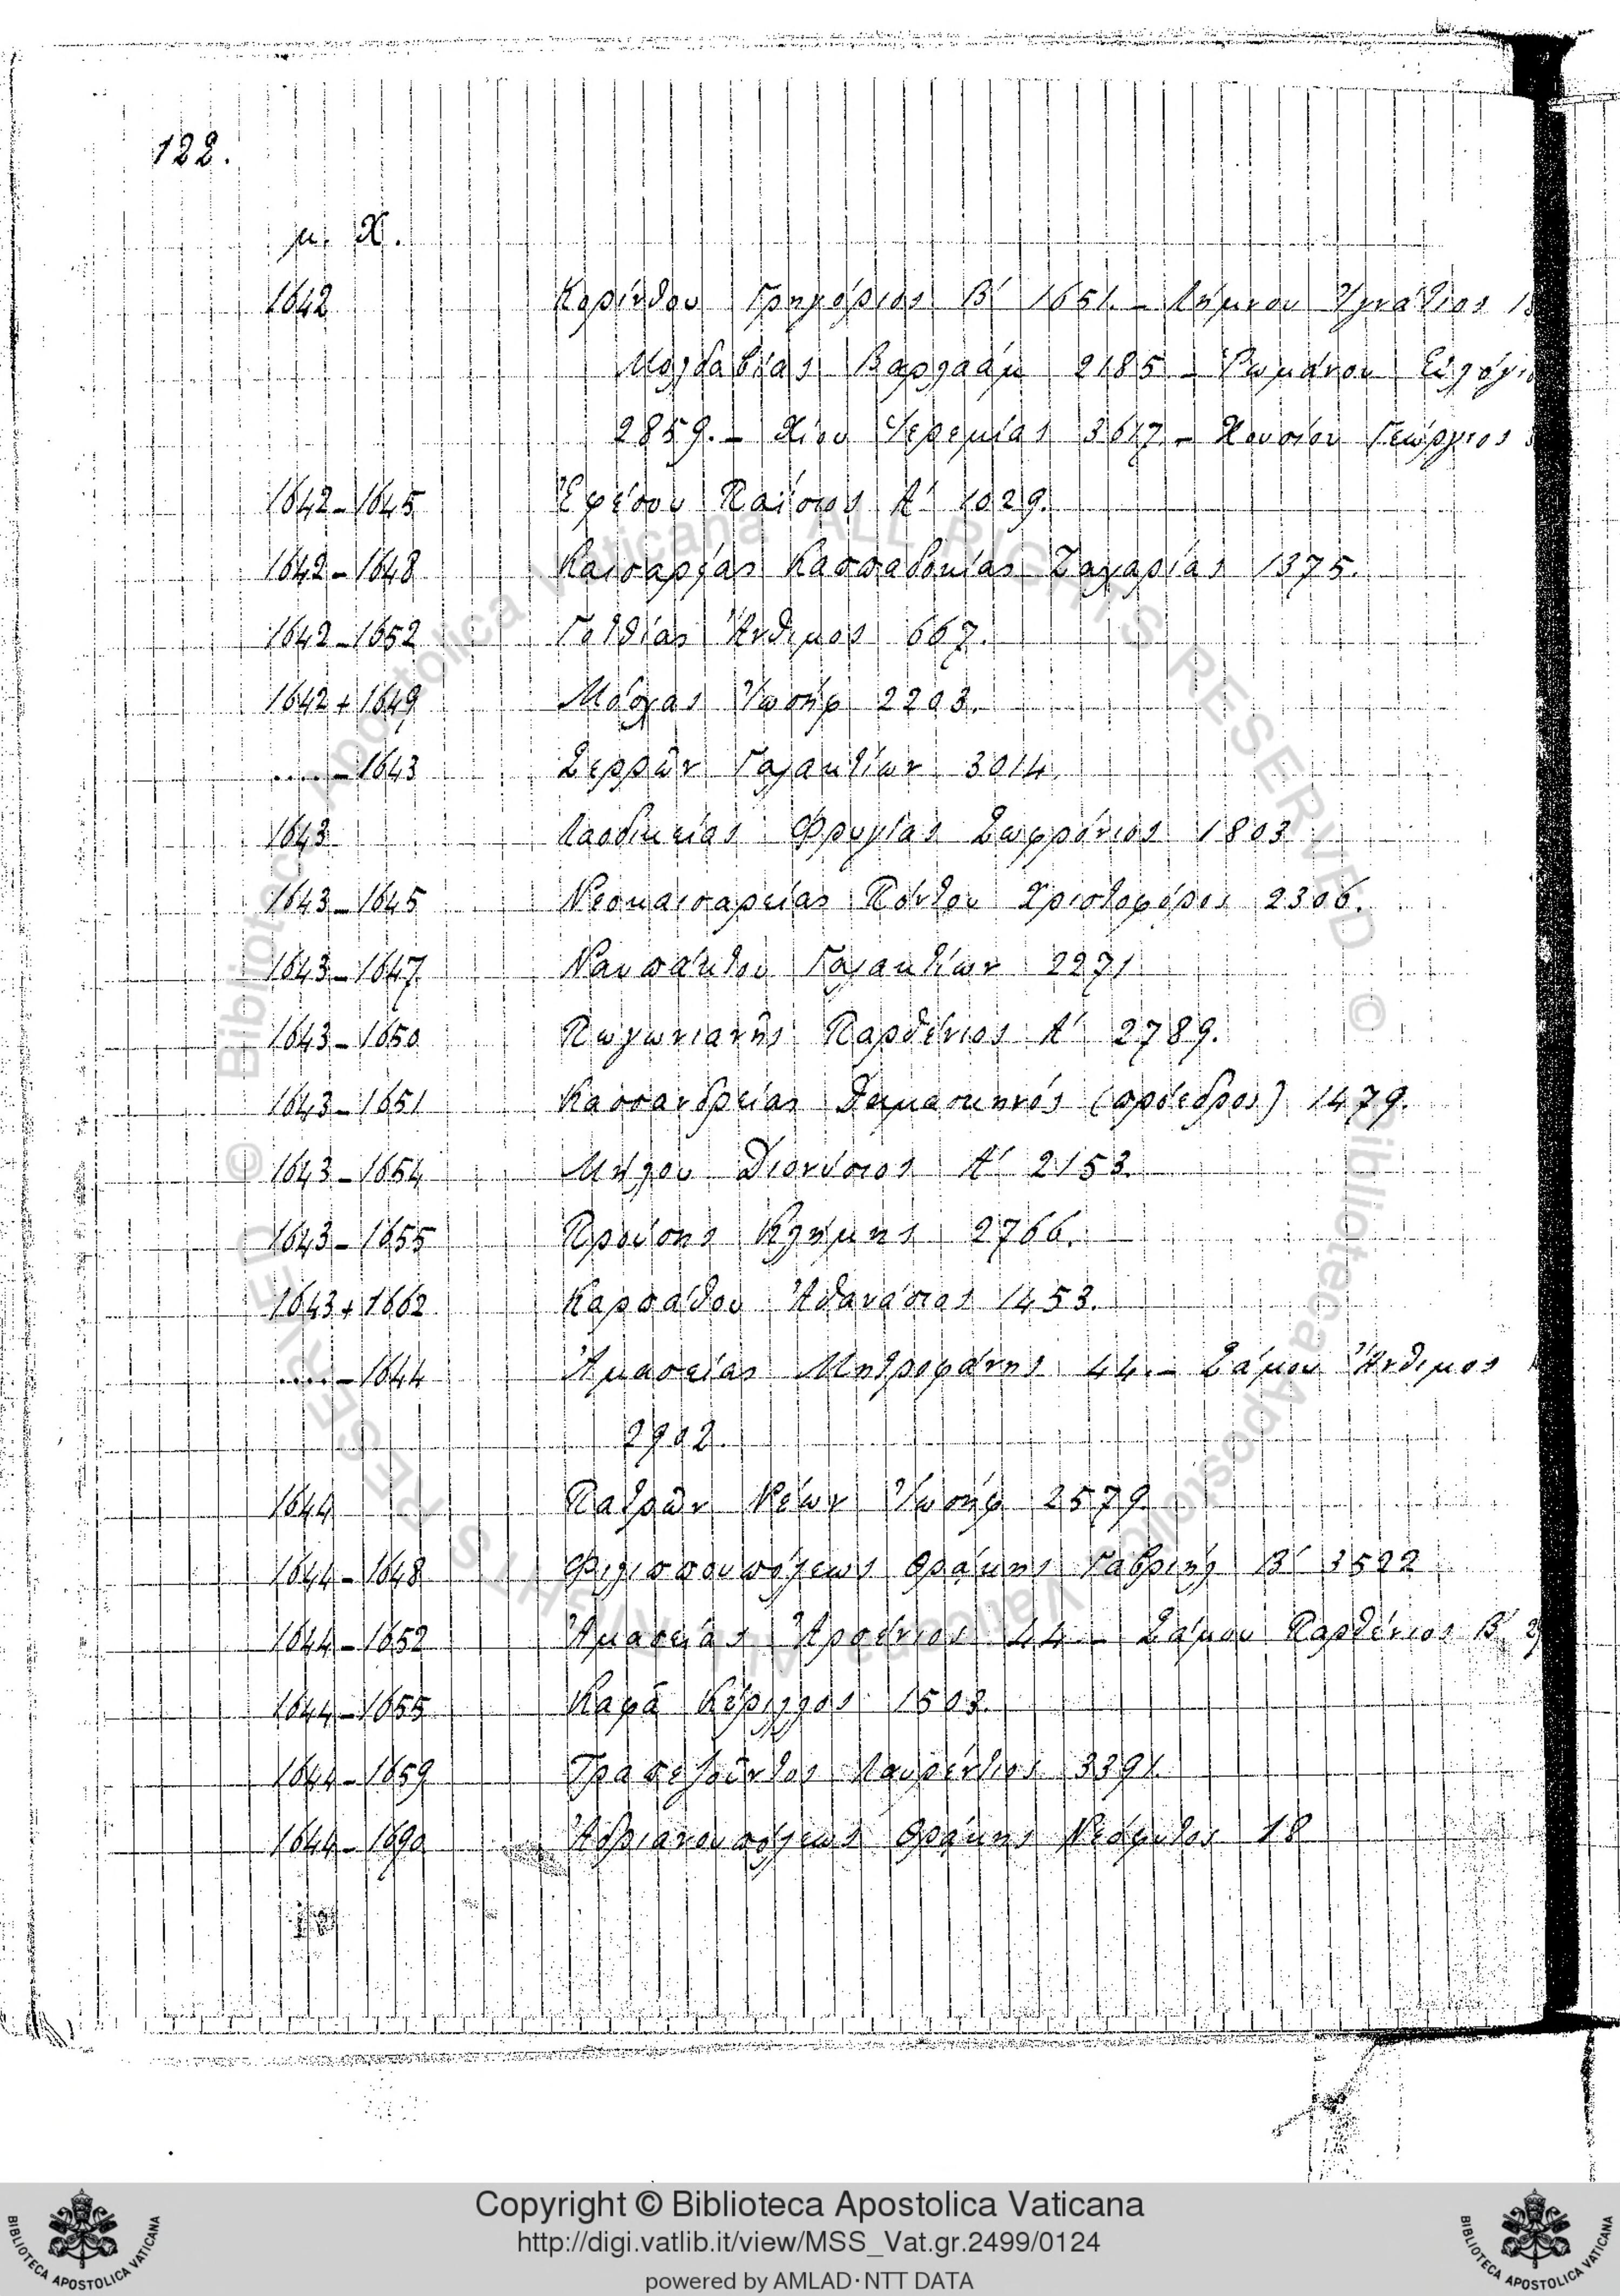 122.
μ. Χ.
1642 Κορίνθου Γρηγόριος Β΄ 1651. – Λήμνου Ἰγνάτιος
Μολδαβίας Βαρλαὰμ 2185 – Ῥωμάνου Εὐλόγιο
2859. – Χίου Ἱερεμίας 3617 – Χουσίου Γεώργιος
1642 – 1645 Ἐφέσου Παΐσιος Α΄ 1029.
1642 – 1648 Καισαρείας Καππαδοκίας Ζαχαρίας 1375.
1642 – 1652 Γοτθίας Ἄνθιμος 667.
1642 + 1649 Μόσχας Ἰωσήφ 2203.
..... – 1643 Σερρῶν Γαλακτίων 3014.
1643 Λαοδικείας Φρυγίας Σωφρόνιος 1803
1643 – 1645 Νεοκαισαρείας Πόντου Χριστοφόρος 2306.
1643 – 1647 Ναυπάκτου Γαλακτίων 2271
1643 – 1650 Πωγωνιανῆς Παρθένιος Α΄ 2789.
1643 – 1651 Κασσανδρείας Δαμασκηνός (πρόεδρος) 1479.
1643 – 1654 Μήλου Διονύσιος Α΄ 2153.
1643 – 1655 Προύσης Κλήμης 2766.
1643 + 1662 Καρπάθου Ἀθανάσιος 1453.
..... – 1644 Ἀμασείας Μητροφάνης 44. – Σάμου Ἄνθιμος
2902.
1644 Πατρῶν Νέων Ἰωσήφ 2579
1644 – 1648 Φιλιππουπόλεως Θράκης Γαβριήλ Β΄ 3522
1644 – 1652 Ἀμασείας Ἀρσένιος 44 – Σάμου Παρθένιος Β΄
1644 – 1655 Καφᾶ Κύριλλος 1503.
1644 – 1659 Τραπεζοῦντος Λαυρέντιος 3391.
1644 – 1690 Ἀδριανουπόλεως Θράκης Νεόφυτος 18
Copyright © Biblioteca Apostolica Vaticana
http://digi.vatlib.it/view/MSS_Vat.gr.2499/0124
powered by AMLAD·NTT DATA